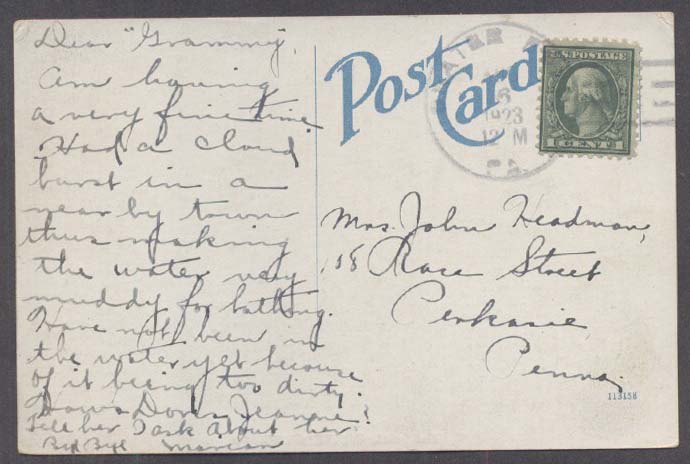 Dear "Grammy,
Am having
a very fine time.
Had a cloud
burst in a
near by town
thus making
the water very
muddy for bathing.
Have not been in
the water yet because
of it being too dirty.
How's Doris Jeanne?
Tell her I ask about her.
Bye Bye Marian
Post Card
WATER
1923
12 M
PA.
U.S. POSTAGE
1 CENT 1
Mrs. John Headman,
Race Street
Perkasie,
Penna.
113158